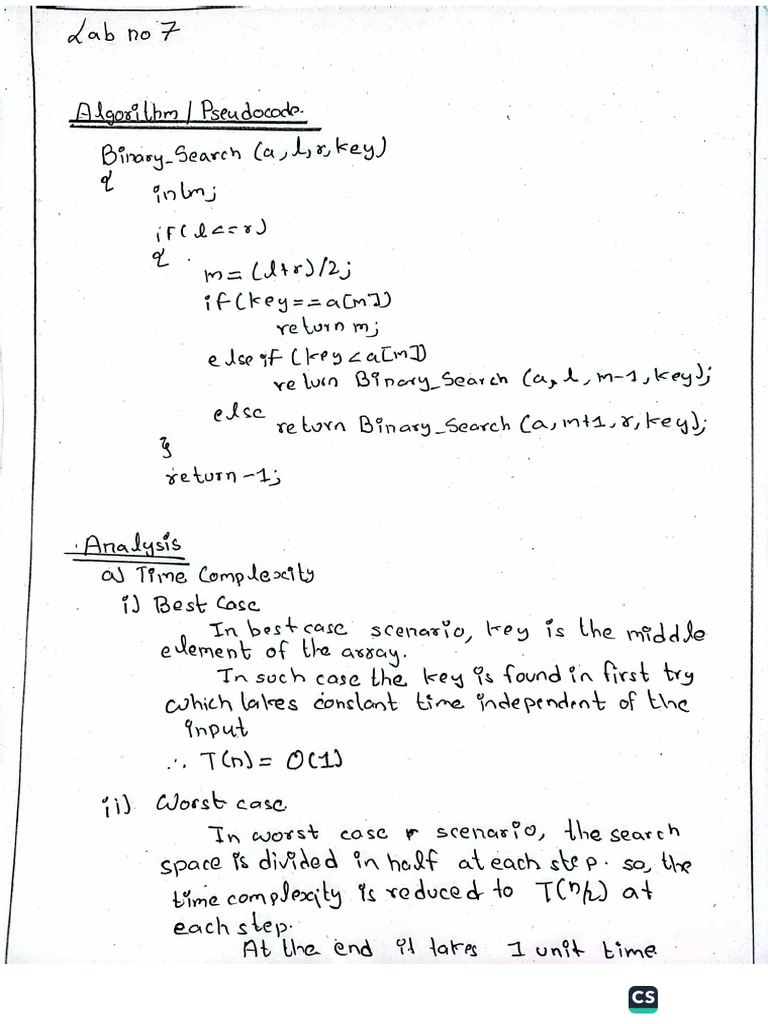 Lab no 7
Algorithm / Pseudocode.
Binary_Search (a, l, r, key)
{
int m;
if (l <= r)
{
m = (l+r)/2;
if (key == a[m])
return m;
else if (key < a[m])
return Binary_Search (a, l, m-1, key);
else
return Binary_Search (a, m+1, r, key);
}
return -1;
Analysis
a) Time Complexity
i) Best Case
In best case scenario, key is the middle
element of the array.
In such case the key is found in first try
which takes constant time independent of the
input
∴ T(n) = O(1)
ii) Worst case
In worst case scenario, the search
space is divided in half at each step. so, the
time complexity is reduced to T(n/2) at
each step.
At the end it takes 1 unit time
CS